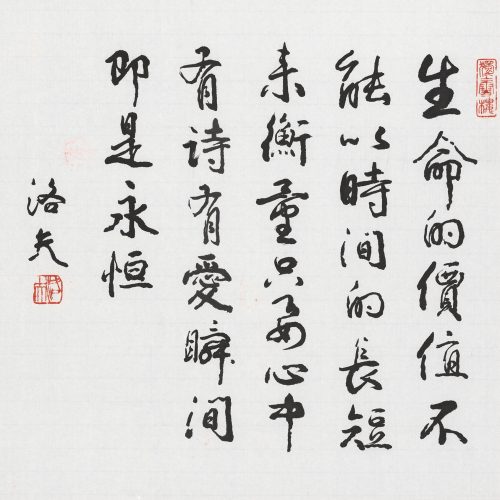 生命的價值不
能以時间的長短
来衡量只要心中
有诗有愛瞬间
即是永恒
洛夫